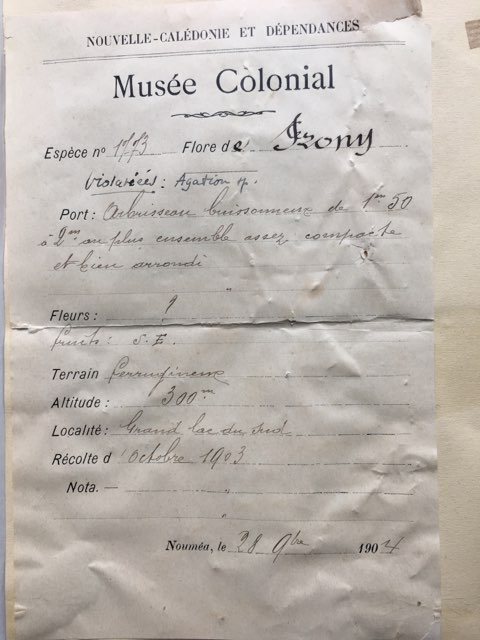 NOUVELLE-CALÉDONIE ET DÉPENDANCES
Musée Colonial
Espèce nº 1773 Flore de Prony
Violariées: Agation sp.
Port: Arbrisseau buissonneux de 1m 50
à 2m au plus ensemble assez compacte
et bien arrondi
"
Fleurs: ?
fruits: S. E.
Terrain Ferrugineux
Altitude: 300m
Localité: Grand lac du Sud
Récolte d 'Octobre 1903
Nota. — "
"
Nouméa, le 28 9bre 1904